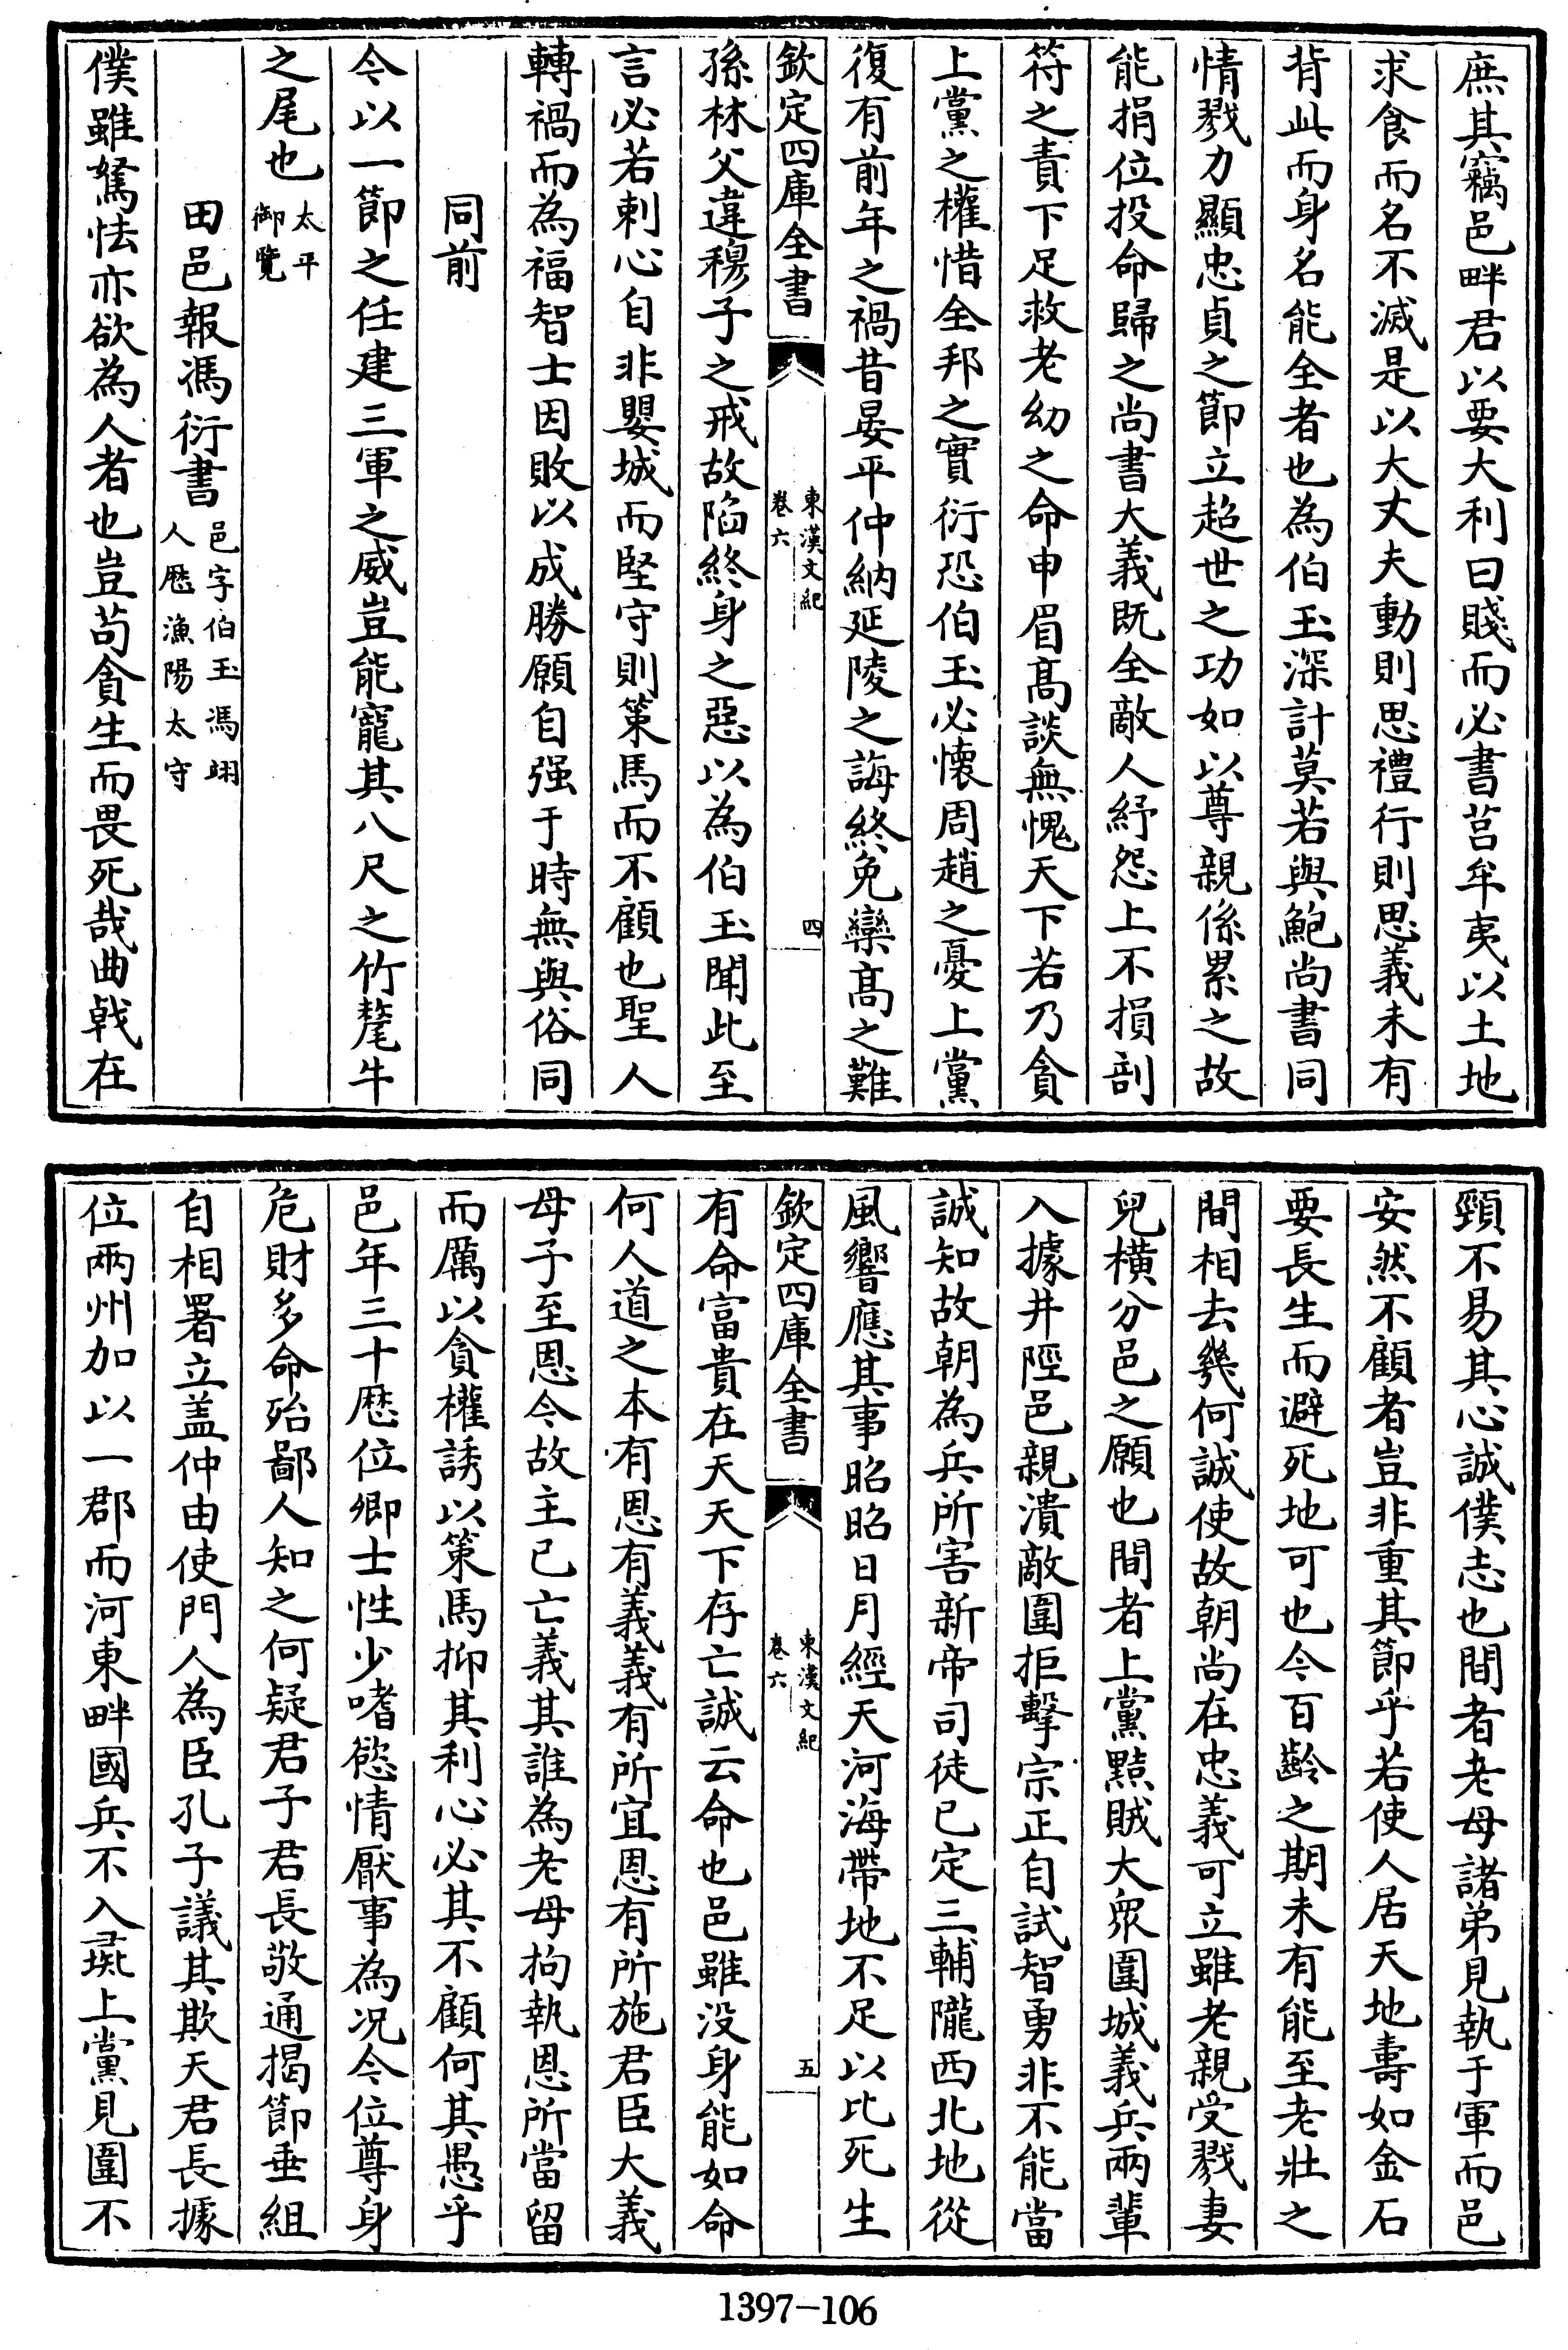 庶其竊邑畔君以要大利曰賤而必書莒牟夷以土地
求食而名不滅是以大丈夫動則思禮行則思義未有
背此而身名能全者也為伯玉深計莫若與鮑尚書同
情戮力顯忠貞之節立超世之功如以尊親係累之故
能捐位投命歸之尚書大義既全敵人紓怨上不損剖
符之責下足救老幼之命申眉髙談無愧天下若乃貪
上黨之權惜全邦之實衍恐伯玉必懷周趙之憂上黨
復有前年之禍昔晏平仲納延陵之誨終免欒髙之難
欽定四庫全書
東漢文紀
卷六
四
孫林父違穆子之戒故陷終身之惡以為伯玉聞此至
言必若刺心自非嬰城而堅守則策馬而不顧也聖人
轉禍而為福智士因敗以成勝願自强于時無與俗同
同前
今以一節之任建三軍之威豈能寵其八尺之竹氂牛
之尾也太平
御覽
田邑報馮衍書邑字伯玉馮翊
人厯漁陽太守
僕雖駑怯亦欲為人者也豈苟貪生而畏死哉曲戟在
頸不易其心誠僕志也間者老母諸弟見執于軍而邑
安然不顧者豈非重其節乎若使人居天地壽如金石
要長生而避死地可也今百齡之期未有能至老壯之
間相去幾何誠使故朝尚在忠義可立雖老親受戮妻
兒横分邑之願也間者上黨黠賊大衆圍城義兵兩輩
入據井陘邑親潰敵圍拒擊宗正自試智勇非不能當
誠知故朝為兵所害新帝司徒已定三輔隴西北地從
風響應其事昭昭日月經天河海帶地不足以比死生
欽定四庫全書
東漢文紀
卷六
五
有命富貴在天天下存亡誠云命也邑雖没身能如命
何人道之本有恩有義義有所宜恩有所施君臣大義
母子至恩今故主已亡義其誰為老母拘執恩所當留
而厲以貪權誘以策馬抑其利心必其不顧何其愚乎
邑年三十厯位卿士性少嗜慾情厭事為况今位尊身
危財多命殆鄙人知之何疑君子君長敬通揭節垂組
自相署立盖仲由使門人為臣孔子議其欺天君長據
位兩州加以一郡而河東畔國兵不入彘上黨見圍不
1397—106